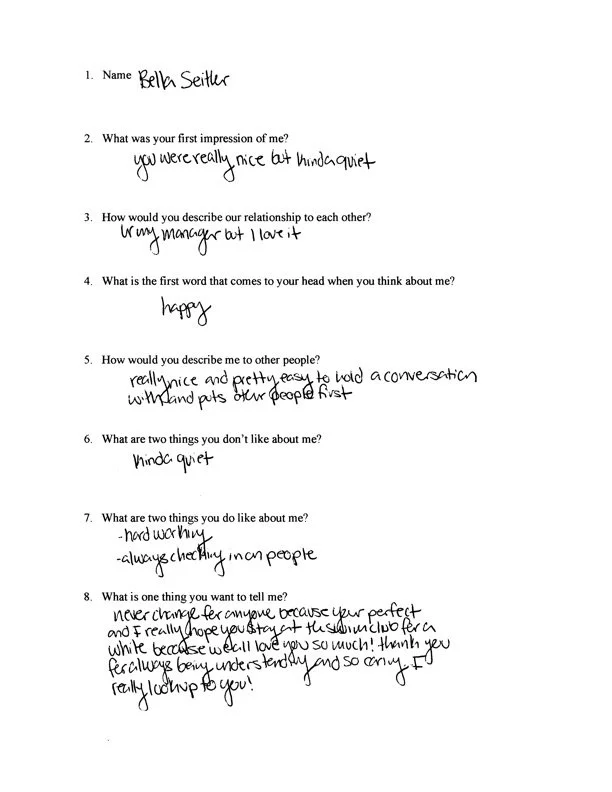 1. Name Bella Seitler
2. What was your first impression of me?
you were really nice but kinda quiet
3. How would you describe our relationship to each other?
ur my manager but I love it
4. What is the first word that comes to your head when you think about me?
happy
5. How would you describe me to other people?
really nice and pretty easy to hold a conversation
with and puts other people first
6. What are two things you don't like about me?
kinda quiet
7. What are two things you do like about me?
-hard working
-always checking in on people
8. What is one thing you want to tell me?
never change for anyone because your perfect
and I really hope you stay at the swim club for a
while because we all love you so much! thank you
for always being understanding and so caring. I
really look up to you!